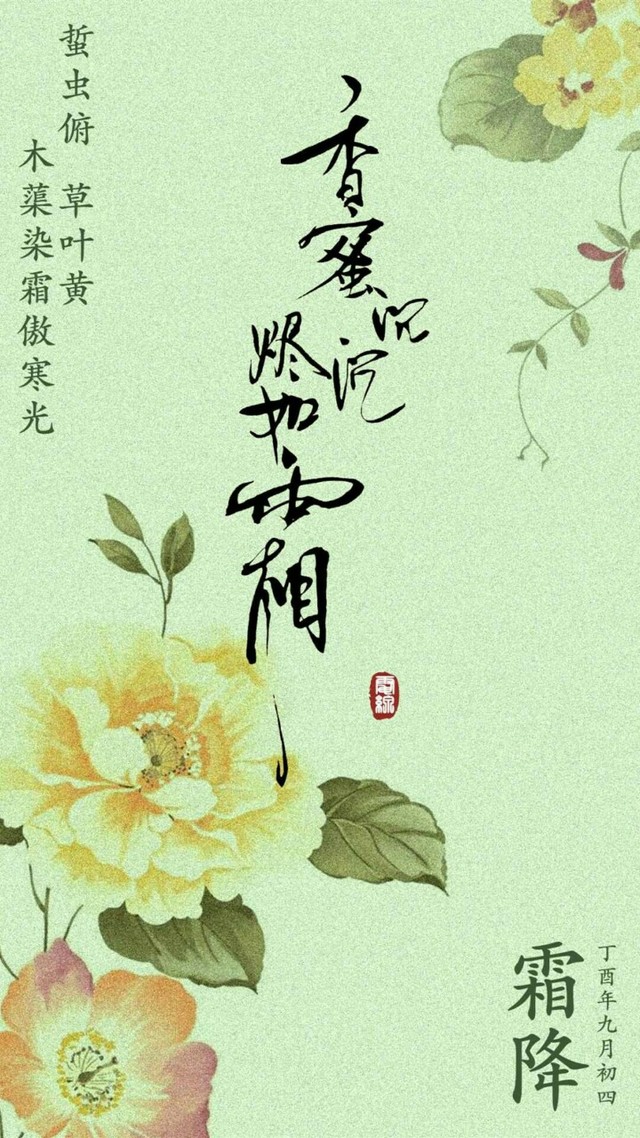 香蜜沉沉
烬如霜
蜇虫俯 草叶黄
木蕖染霜傲寒光
丁酉年九月初四
霜降